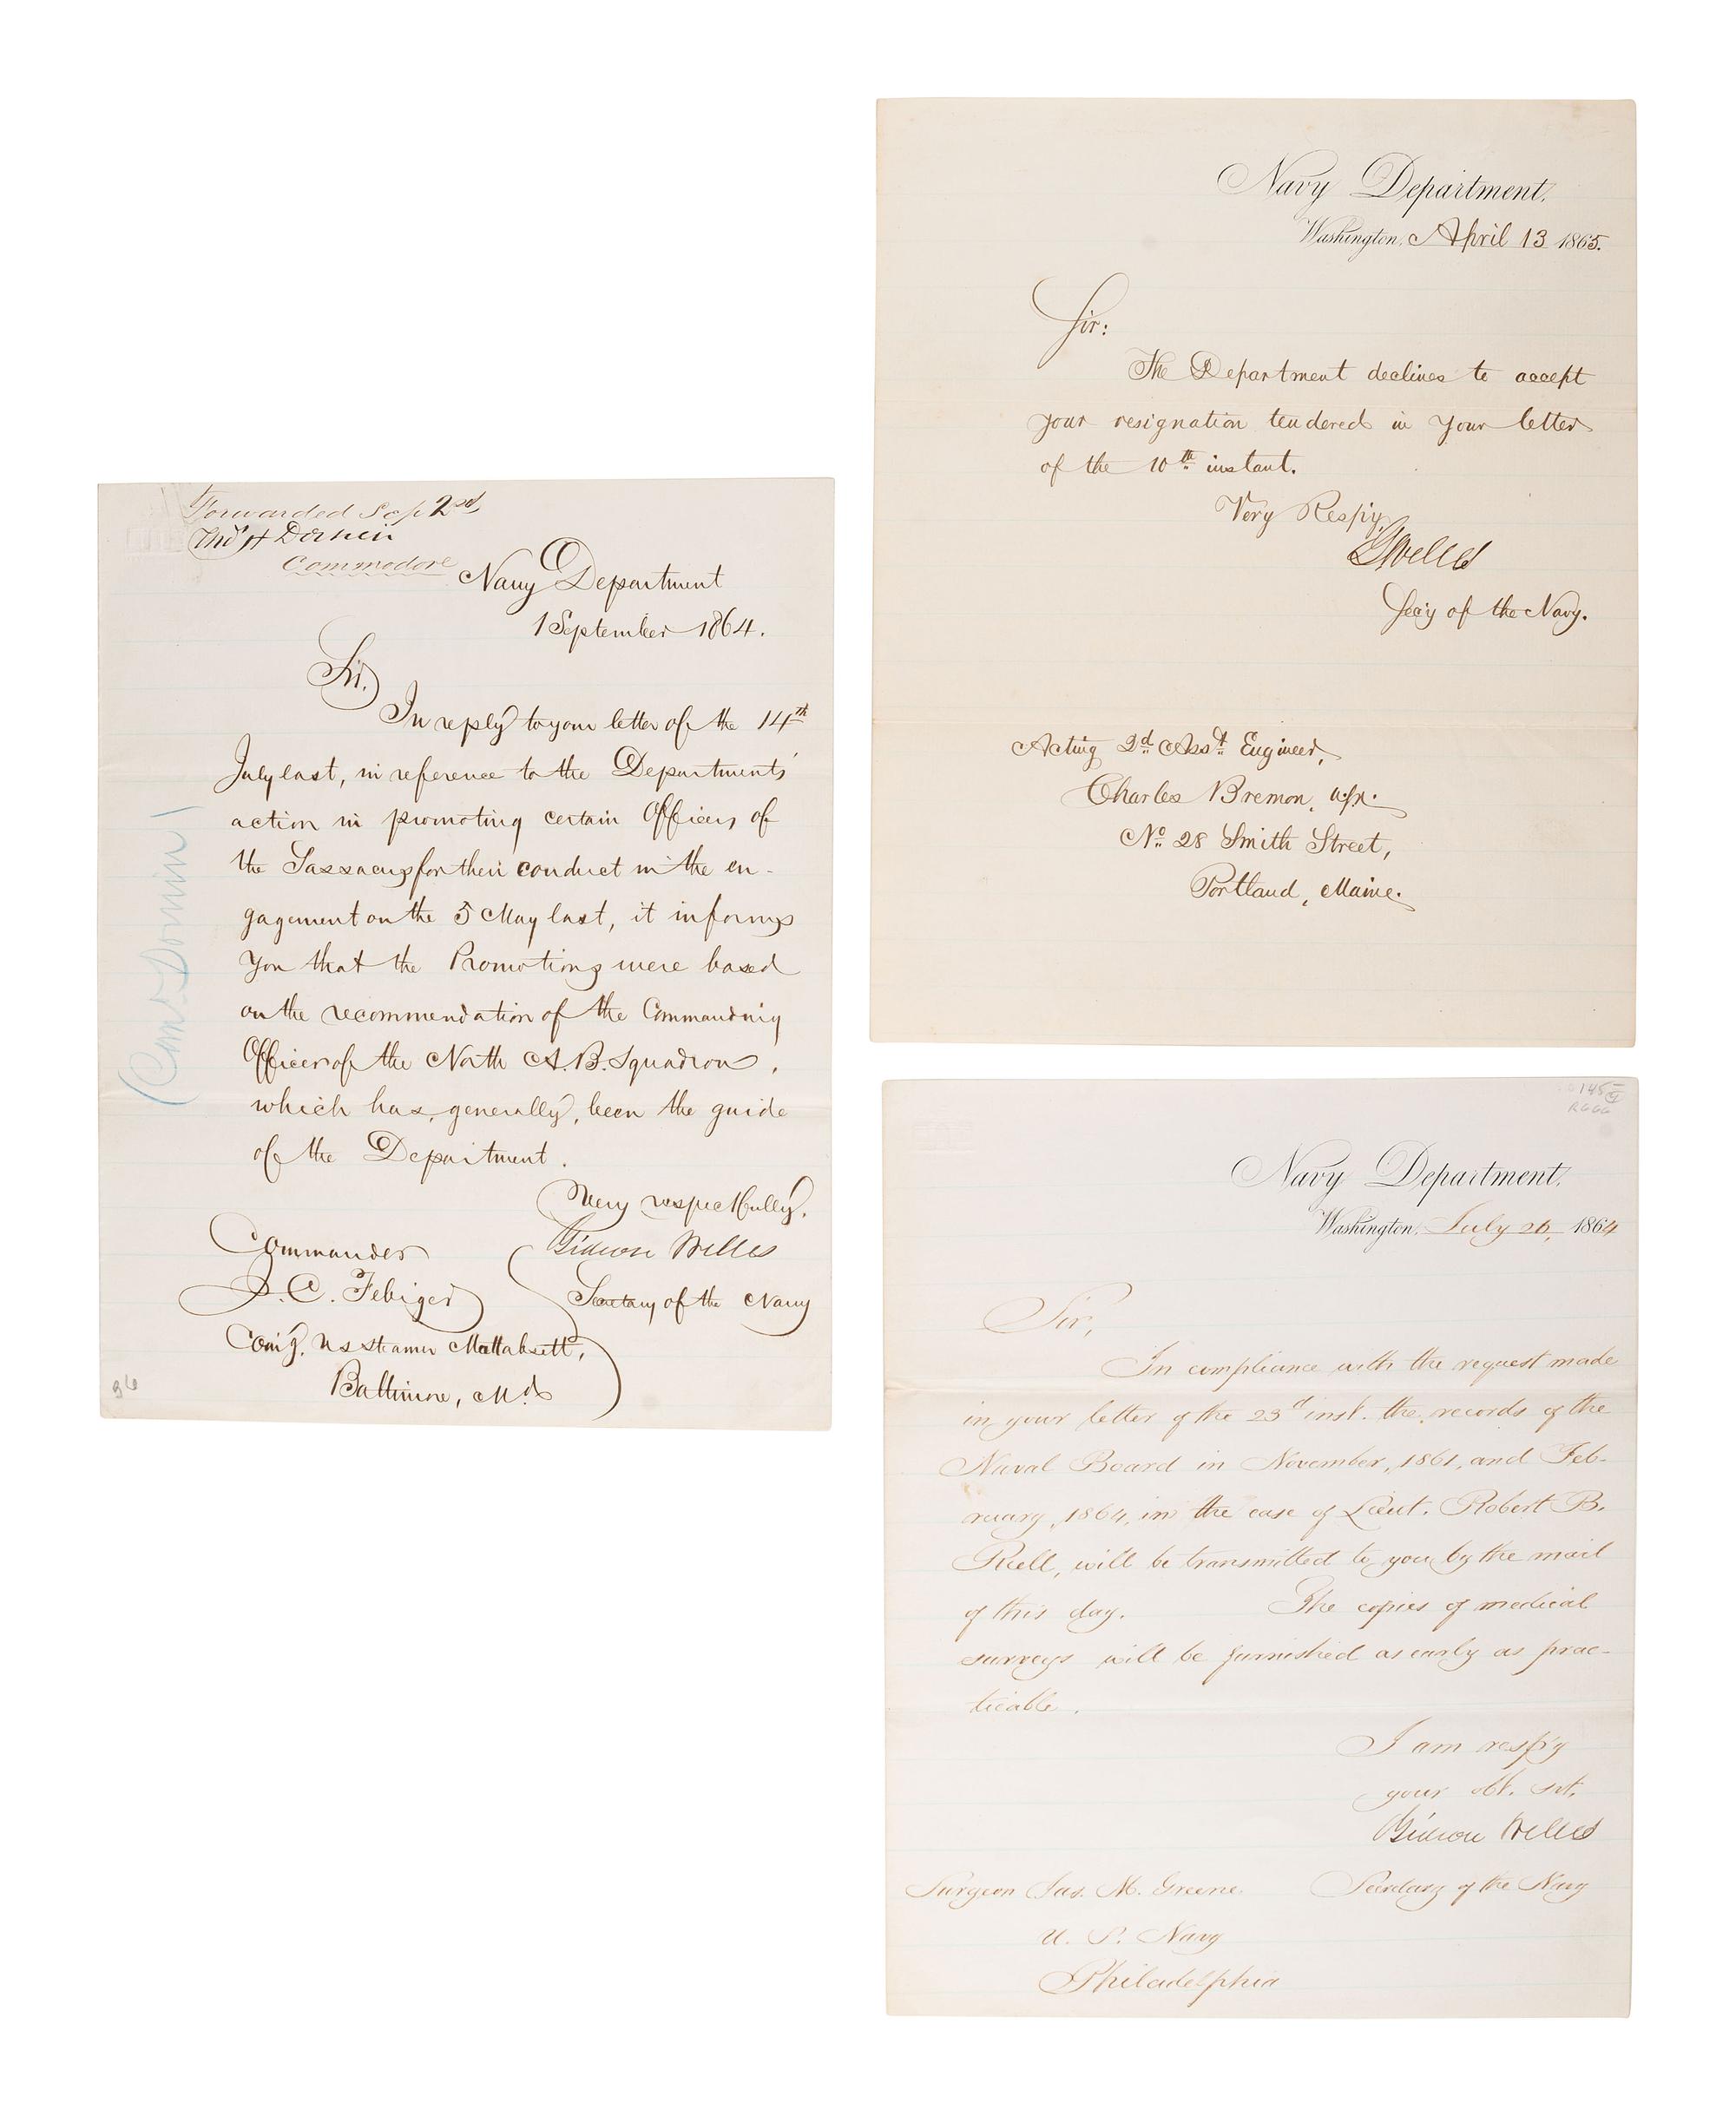 Forwarded Sep 2nd
Thos H Dornin
Commodore
Navy Department
1 September 1864.
Sir,
In reply to your letter of the 14th
July last, in reference to the Departments'
action in promoting certain Officers of
the Sassacus for their conduct in the en-
gagement on the 5 May last, it informs
you that the Promotions were based
on the recommendation of the Commanding
Officer of the North A. B. Squadron,
which has, generally, been the guide
of the Department.
Very respectfully,
Gideon Welles
Secretary of the Navy
Commander
J. C. Febiger
Com'g. US Steamer Mattabesett,
Baltimore, Md
(Com. Dornin)
36
Navy Department,
Washington, April 13 1865.
Sir:
The Department declines to accept
your resignation tendered in your letter
of the 10th instant.
Very Respy,
G Welles
Secy of the Navy.
Acting 2d Asst Engineer,
Charles Bremon,
No. 28 Smith Street,
Portland, Maine.
145
Navy Department,
Washington, July 26, 1864
Sir,
In compliance with the request made
in your letter of the 23d inst. the records of the
Naval Board in November, 1861, and Feb-
ruary, 1864, in the case of Lieut. Robert B.
Riell, will be transmitted to you by the mail
of this day. The copies of medical
surveys will be furnished as early as prac-
ticable.
I am resp'y
your obt. svt.
Gideon Welles
Secretary of the Navy
Surgeon Jas. M. Greene
U. S. Navy
Philadelphia